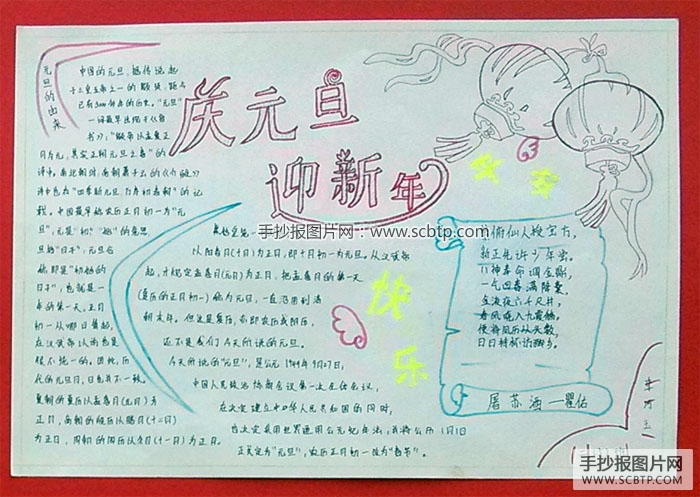 元旦的由来
中国的元旦，据传说起
于三皇五帝之一的颛顼，距今
已有3000多年的历史。"元旦"
一词最早出现于《晋
书》："颛帝以孟夏正
月为元，其实正朔元旦之春"的
诗中。南北朝时，南朝萧子云的《介雅》
诗中也有"四季新元旦，万寿初春朝"的记
载。中国最早称农历正月初一为"元
旦"，元是"初""始"的意思
旦指"日子"，元旦合
称即是"初始的
日子"，也就是一
年的第一天。正月
初一从哪日算起，
在汉武帝以前也是
很不统一的。因此，历
代的元旦，日也并不一致。
夏朝的夏历以孟喜月(元月)为
正月，商朝的殷历以腊月(十二月)
为正月，周朝的周历以冬月(十一月)为正月。
庆元旦
迎新年
手抄报图片网：www.scbtp.com
以阳春月(十月)为正月，即十月初一为元旦，从汉武帝
起，才规定孟喜月(元月)为正月，把孟喜月的第一天
(夏历的正月初一)称为元旦，一直沿用到清
朝末年。但这是夏历，亦即农历或阴历，
还不是我们今天所说的元旦。
今天所说的"元旦"，是公元1949年9月27日，
中国人民政治协商会议第一次全体会议，
在决定建立中华人民共和国的同时，
也决定采用世界通用公元纪年法，并将公历1月1日
正式定为"元旦"，农历正月初一改为"春节"。
快
乐
俯仙人授宝方，
新正先许少年尝。
八神奉命调金鼎，
一气回春满绛囊。
金液夜
春风晓入九霞觞。
便将凤历从天数，
日日持杯访醉乡。
屠苏酒—瞿佑
手抄报图片网
WWW.SCBTP.COM